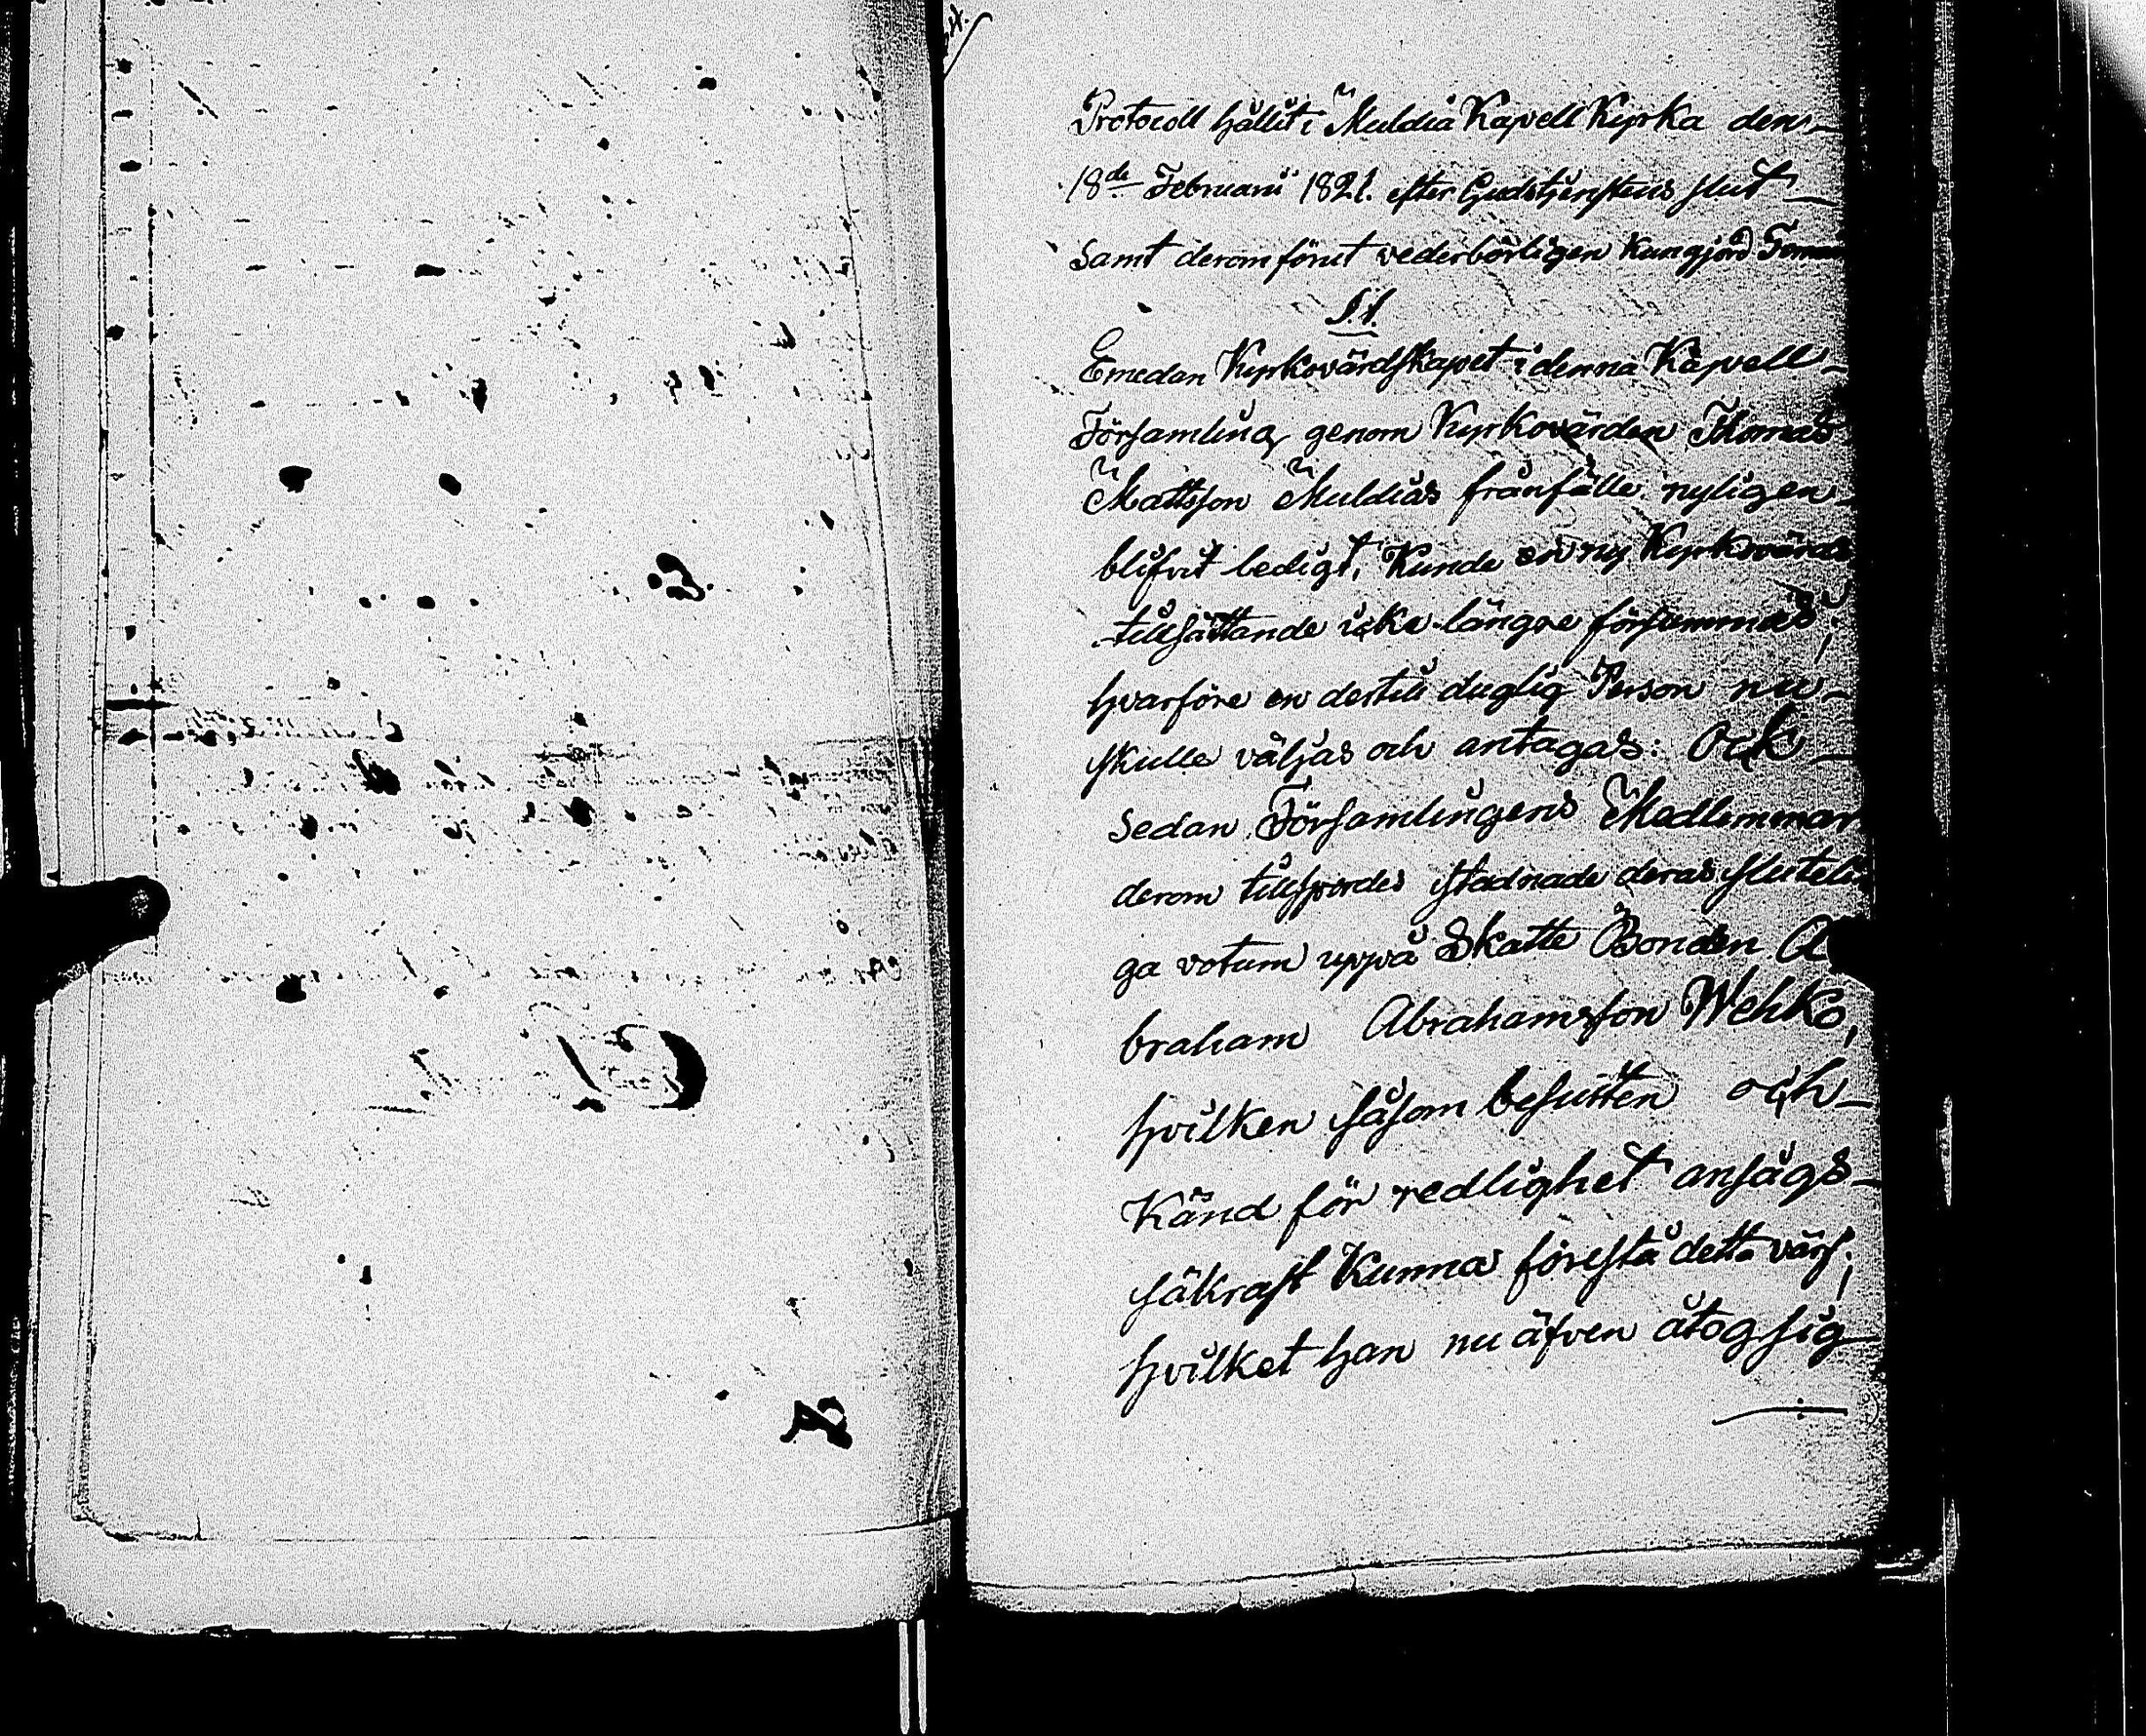 Protocoll hållit i Muldia Kapell Kyrka den
18de Februarii 1821. efter Gudstjenstens slut
samt derom förut vederbörligen kungjord
§. 1.
Emedan Kyrkovärdskapet i denna Kapell
Församling genom Kyrkovärden Thomas
Mattsson Muldias frånfälle nyligen
blifvit ledigt, Kunde en ny Kyrkovärds
tillsättande icke längre försummas;
hvarföre en dertill duglig Person nu
skulle väljas och antagas: Ock
sedan Församlingens Medlemmar
derom tillspordes stadnade deras sluteli
ga votum uppå Skatte Bonden A
braham Abrahamsson Wehko,
hvilken såsom besutten och
Känd för redlighet ansågs
säkrast Kunna förestå detta värf;
hvilket han nu äfven åtog sig